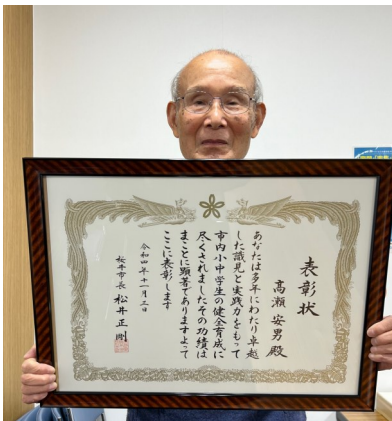 表彰状
髙瀬安男殿
あなたは多年にわたり卓越
した識見と実践力をもって
市内小中学生の健全育成に
尽くされましたその功績は
まことに顕著でありますよって
ここに表彰します
令和四年十一月三日
桜井市長 松井正剛